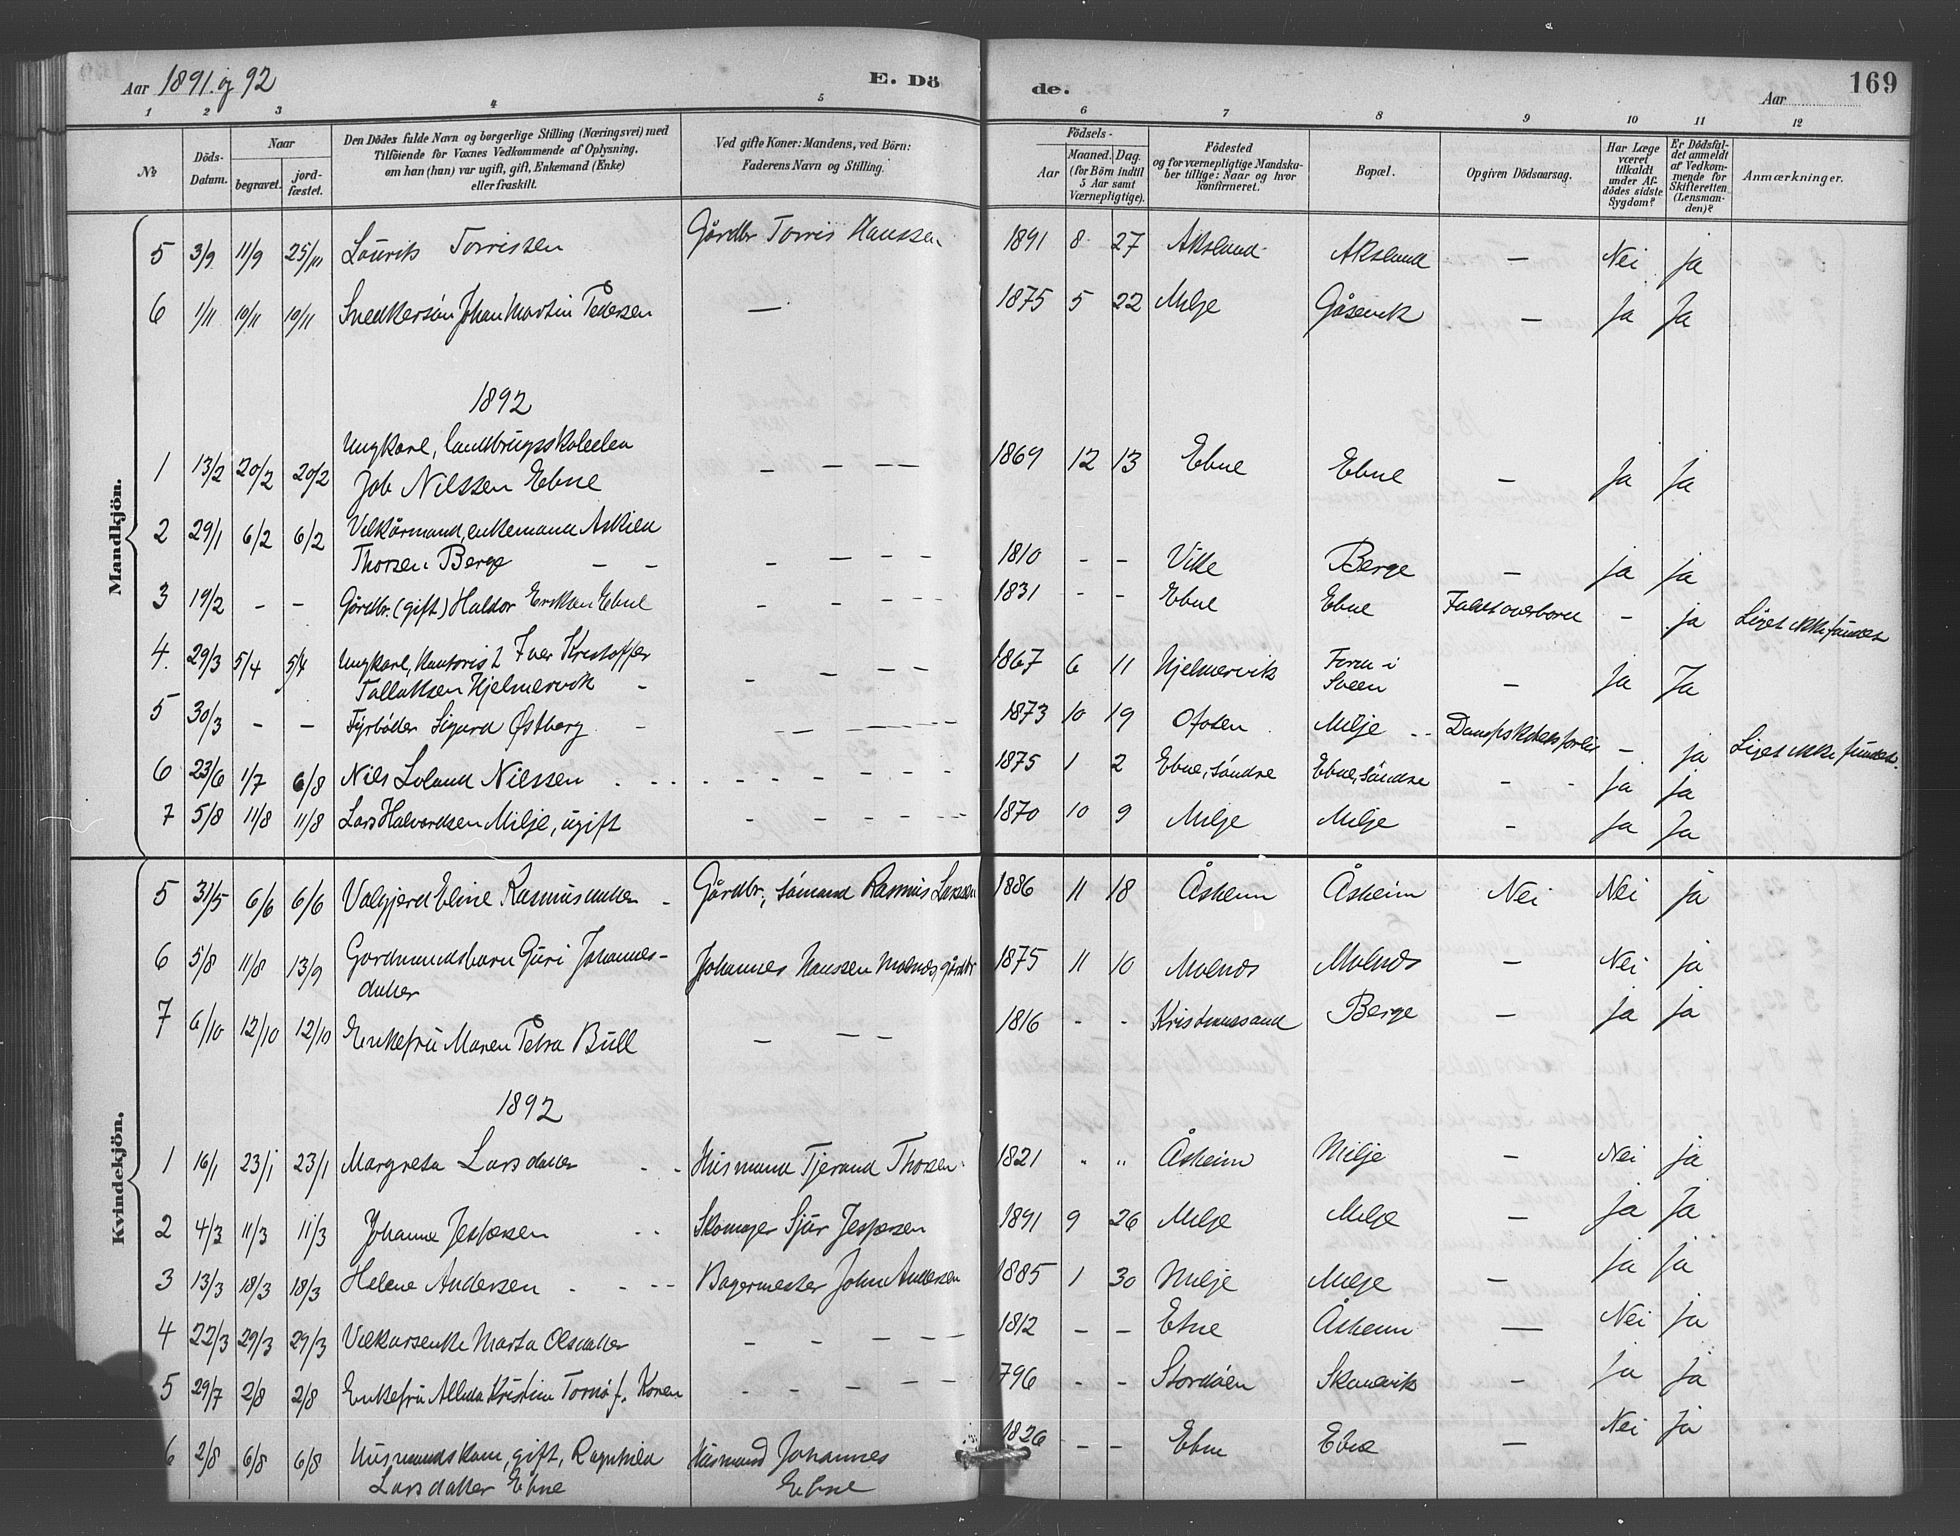 Aar 1891 og 92
E. Dö
de.
Aar
169
1 2 3 4 5 6 7 8 9 10 11 12
№
Döds-Datum.
Naar
begravet.
jord-fæstet.
Den Dödes fulde Navn og borgerlige Stilling (Næringsvei) med
Tilföiende for Voxnes Vedkommende af Oplysning,
om han (hun) var ugift, gift, Enkemand (Enke)
eller fraskilt.
Ved gifte Koner: Mandens, ved Börn:
Faderens Navn og Stilling.
Födsels-
Aar
Maaned. Dag.
(for Börn indtil
5 Aar samt
Værnepligtige).
Födested
og for værnepligtige Mandska-
ber tillige: Naar og hvor
konfirmeret.
Bopæl.
Opgiven Dödsaarsag.
Har Læge
været
tilkaldt
under Af-
dödes sidste
Sygdom?
Er Dödsfal-
det anmeldt
af Vedkom-
mende for
Skifteretten
(Lensman-
den)?
Anmærkninger.
Mandkjön.
5 3/9 11/9 25/11 Laurits Torrissen Gårdbr Torris Hanssen 1891 8 27 Aksland Aksland — Nei ja
6 1/11 10/11 10/11 Snedkersön Johan Martin Pedersen — 1875 5 22 Milje Gåsevik — Ja Ja
1892
1 13/2 20/2 20/2 Ungkarl, landbrugsskoleelev
Job Nilssen Ebne — — — — 1869 12 13 Ebne Ebne — Ja Ja
2 29/1 6/2 6/2 Vilkårmand, enkemand Askild
Thorsen Berge — — — — — — 1810 - - Vikse Berge — ja ja
3 19/2 - - Gårdbr. (gift) Haldor Eriksen Ebne — — — — 1831 - - Ebne Ebne Faldt overbord - ja Liget ikke fundet
4. 29/3 5/4 5/4 Ungkarl, Kontorist Iver Kristoffer
Tollaksen Hjelmervik - - — — — 1867 6 11 Hjelmervik Form i
Sveen — Ja Ja
5 30/3 - - Fyrböder Sigurd Østberg - — — — — 1873 10 19 Ofoten Milje - - Dampskibsforlis - ja Liget ikke fundet.
6 23/6 1/7 6/8 Nils Leland Nilssen 1875 1 2 Ebne, söndre Ebne, söndre - - Ja Ja
7 5/8 11/8 11/8 Lars Halvordsen Milje, ugift - - - - 1870 10 9 Milje Milje - Ja Ja
Kvindekjön.
5 31/5 6/6 6/6 Valgjerd Eline Rasmusdatter - Gårdbr., sömand Rasmus Larssen 1886 11 18 Åsheim Åsheim Nei Nei ja
6 5/8 11/8 13/9 Gardmandsbarn Guri Johannes-
datter Johannes Hanssen Molnes, gårdbr 1875 11 10 Molnes Molnes — Nei ja
7 6/10 12/10 12/10 Enkefru Maren Petra Bull — — — 1816 - - Kristianssand Berge — Ja ja
1892
1 16/1 23/1 23/1 Margreta Larsdatter - - Husmand Tjerand Thorsen 1821 " " Åsheim Milje Nei ja
2 4/3 11/3 11/3 Johanne Jespersen - - Skomager Sjur Jespersen 1891 9 26 Milje Milje — ja Ja
3 13/3 18/3 18/3 Helene Andersen - - - Bagermester John Andersen 1885 1 30 Milje Milje — ja ja
4 22/3 29/3 29/3 Vilkarsenke Marta Olsdatter - - - - - 1812 - - Etne Åsheim — Nei ja
5 29/7 2/8 2/8 Enkefru Alida Kristine Tornö f. Koren - - - - - 1796 - - Stordöen Skonevik — ja ja
6 2/8 6/8 6/8 Husmandskone, gift, Ragnhild
Larsdatter Ebne Husmand Johannes
Ebne 1826 - - Ebne Ebne — Nei ja